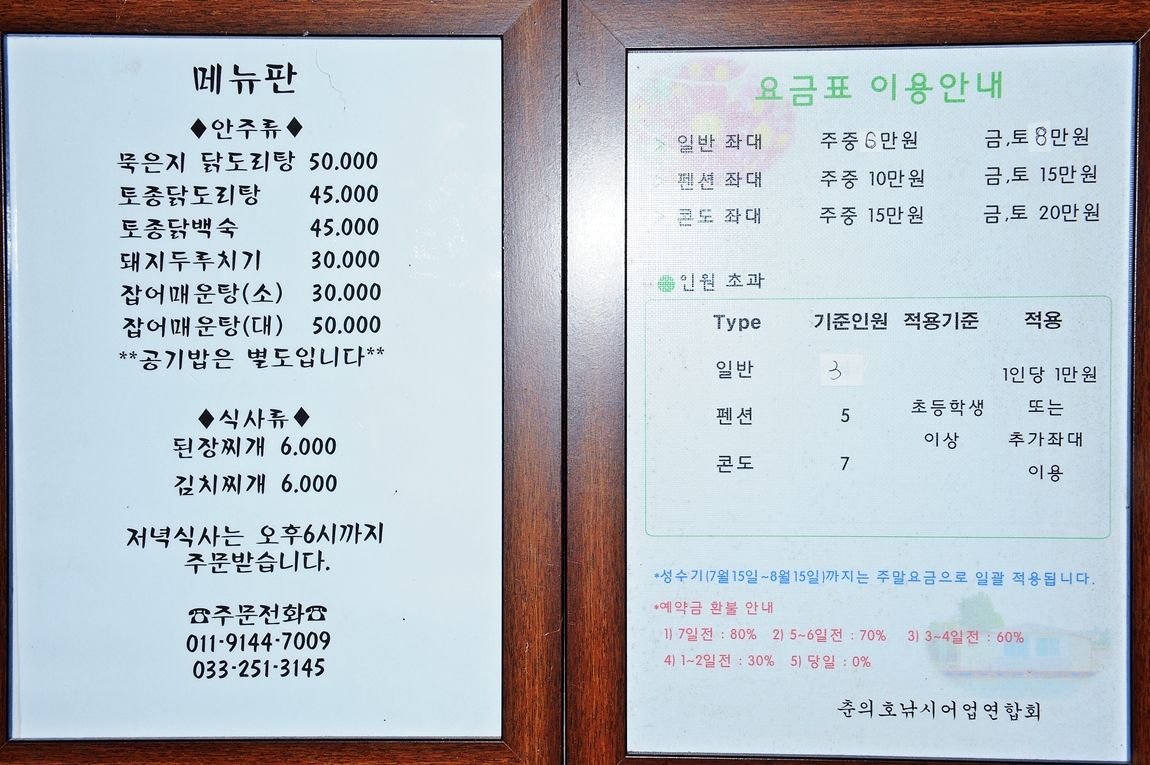 메뉴판
♦안주류♦
묵은지 닭도리탕 50.000
토종닭도리탕 45.000
토종닭백숙 45.000
돼지두루치기 30.000
잡어매운탕(소) 30.000
잡어매운탕(대) 50.000
**공기밥은 별도입니다**
♦식사류♦
된장찌개 6.000
김치찌개 6.000
저녁식사는 오후6시까지
주문받습니다.
☎주문전화☎
011-9144-7009
033-251-3145
요금표 이용안내
> 일반 좌대 주중 6만원 금,토 8만원
> 펜션 좌대 주중 10만원 금,토 15만원
> 콘도 좌대 주중 15만원 금,토 20만원
인원 초과
Type 기준인원 적용기준 적용
일반 3 1인당 1만원
펜션 5 초등학생 또는
이상 추가좌대
콘도 7 이용
*성수기(7월15일~8월15일)까지는 주말요금으로 일괄 적용됩니다.
*예약금 환불 안내
1) 7일전 : 80% 2) 5~6일전 : 70% 3) 3~4일전 : 60%
4) 1~2일전 : 30% 5) 당일 : 0%
춘의호낚시어업연합회